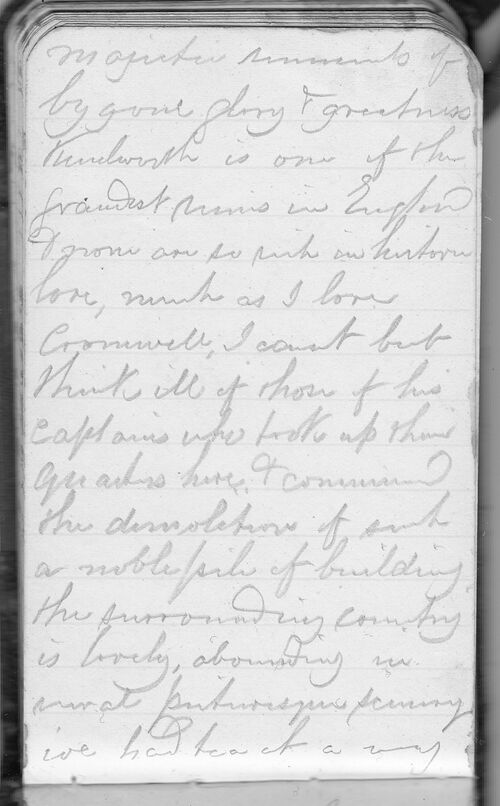 majestic remnants of
by gone glory & greatness
Kenilworth is one of the
grandest ruins in England
& none are so rich in historic
lore, much as I love
Cromwell, I cannot but
think ill of those of his
captains who took up their
quarters here, & commenced
the demolition of such
a noble pile of building
the surrounding country
is lovely, abounding in
rural picturesque scenery
we had tea at a very